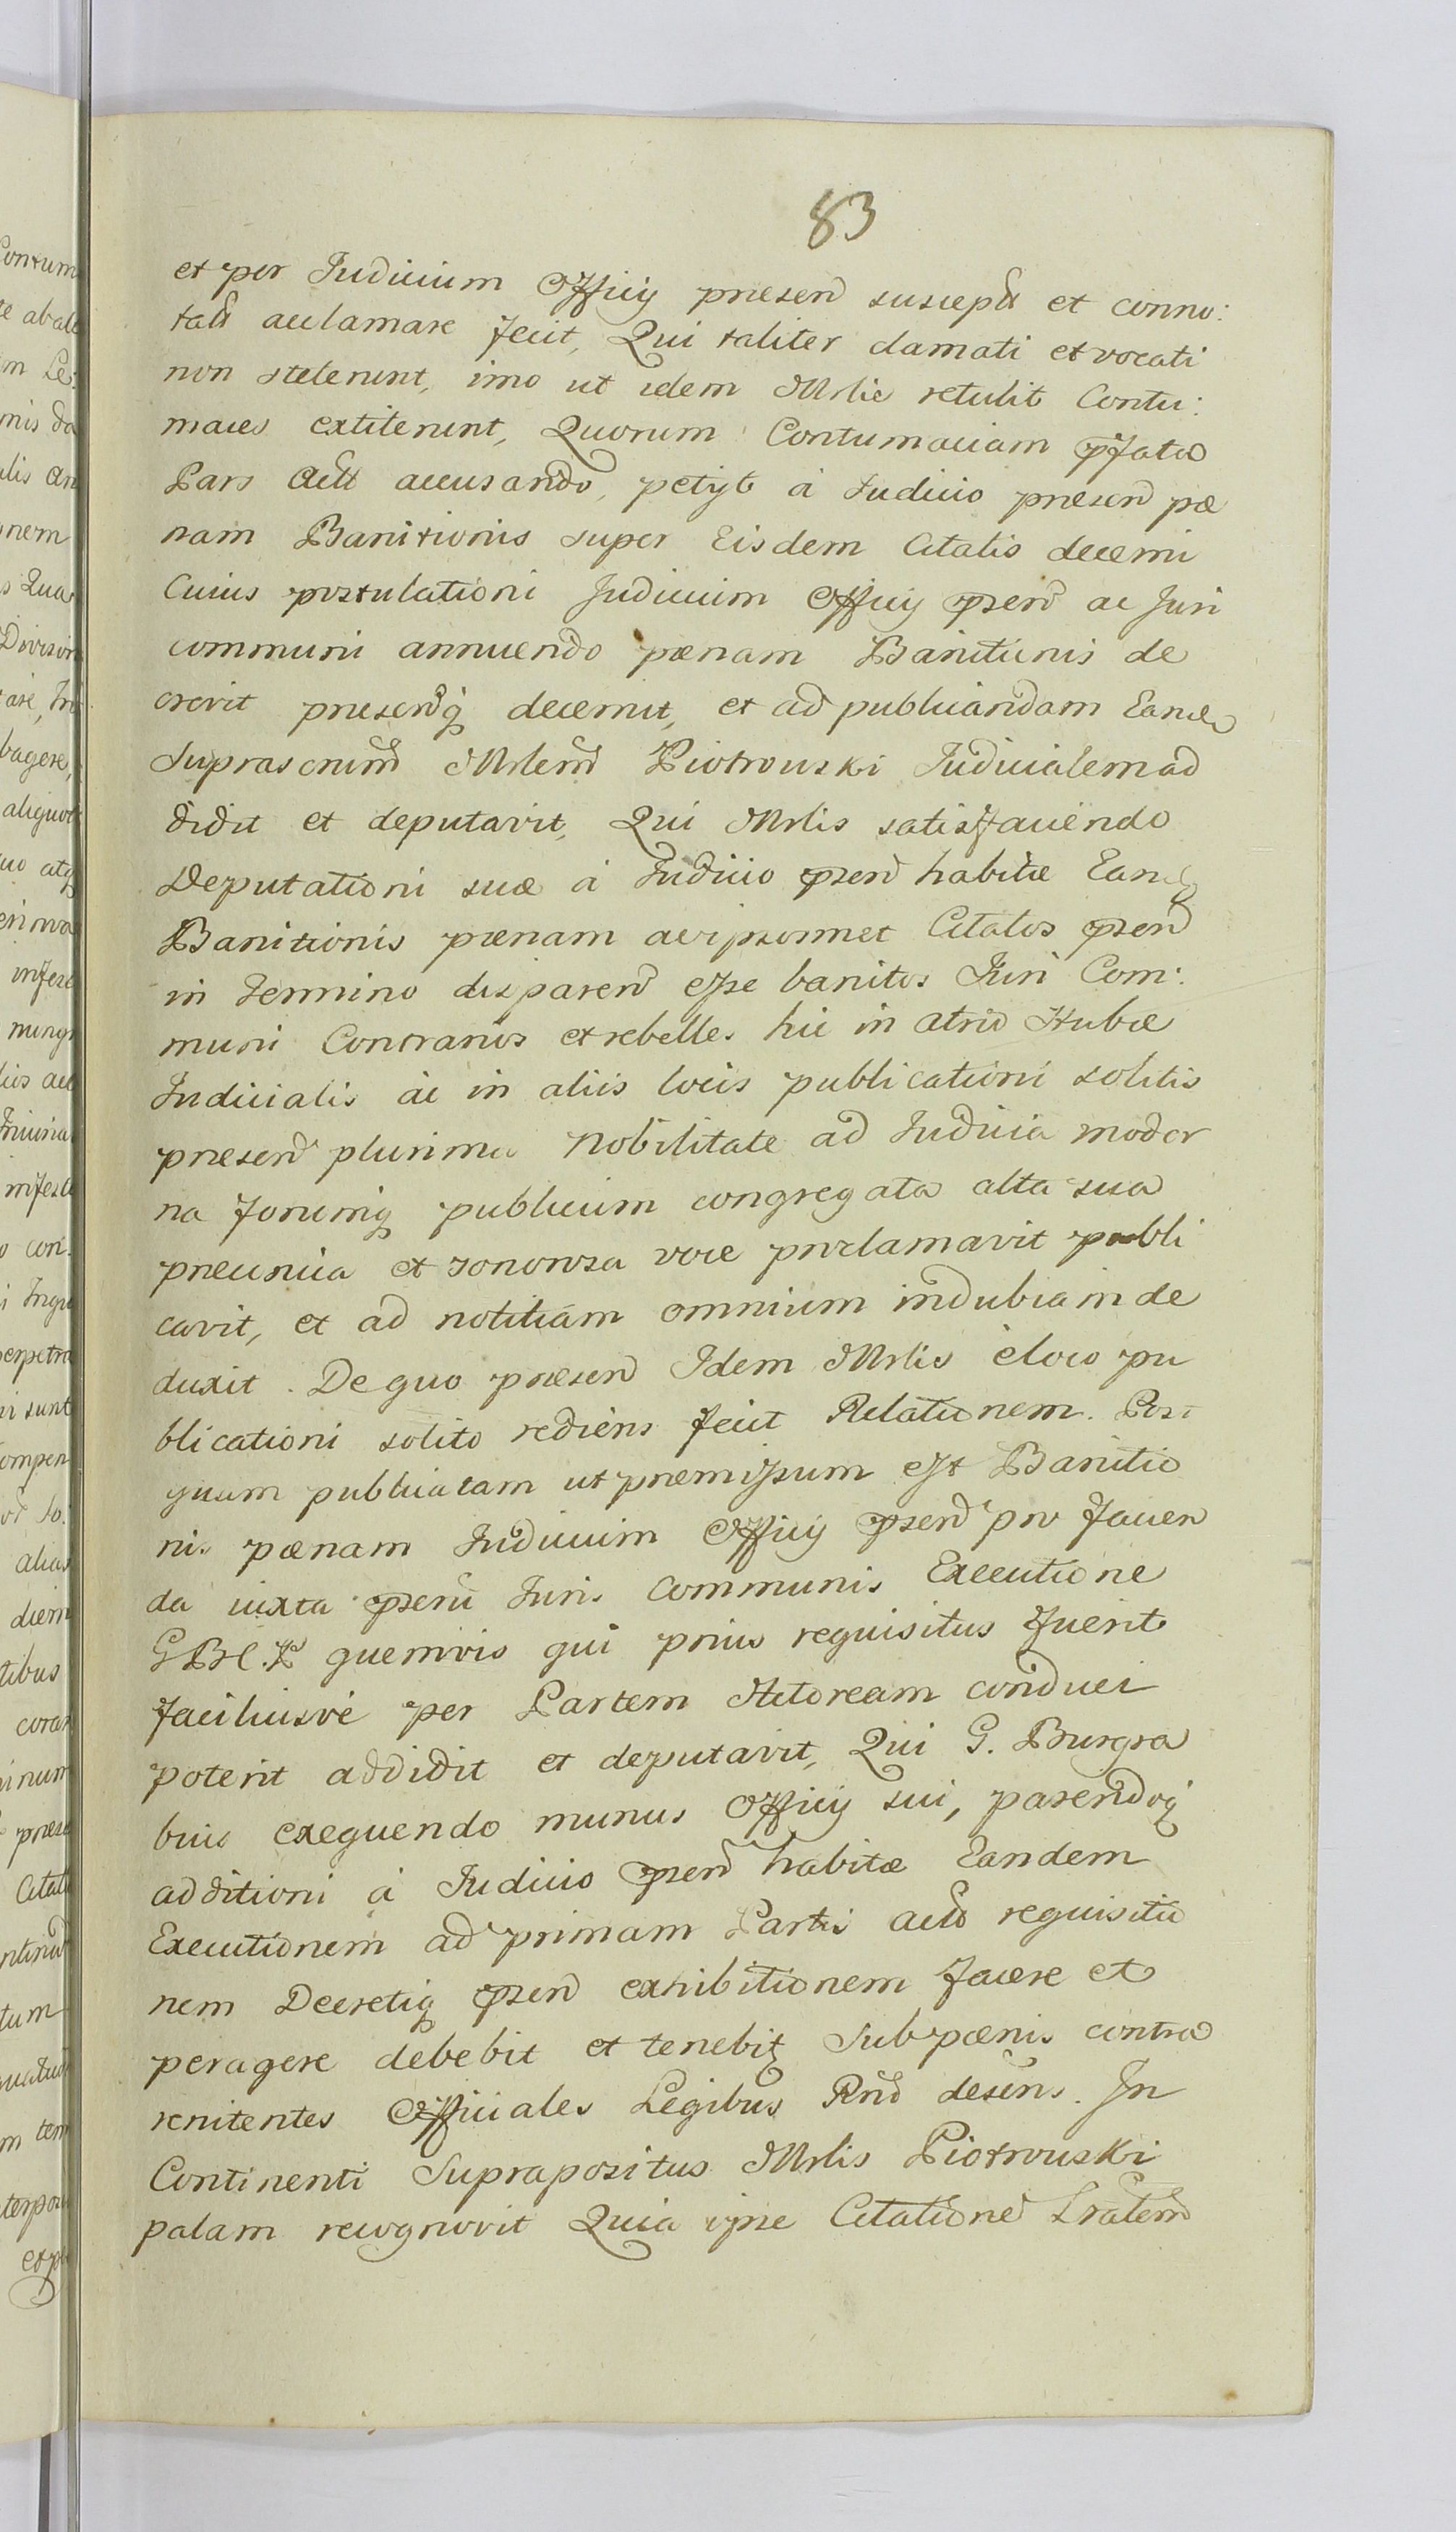 83
et per Judicium Officij præsen suscepta et conno:
tata acclamare fecit, Qui taliter clamati et vocati
non steterunt, imo ut idem Mrlis retulit Contu:
maces extiterunt, Quorum Contumaciam pfata
Pars Actt accusando, petijt á Judicio præsen pæ
nam Banitionis super Eisdem Citatis decerni
Cuius postulationi Judicium Officij psen ac Juri
communi annuendo pœnam Banitionis de
crevit præsenq decernit, et ad publicandam Eande
Suprascrium Mrlem Piotrowski Judicialem ad
didit et deputavit, Qui Mrlis satisfaciendo
Deputationi suæ á Judicio psen habitæ Eand
Banitionis pœnam ac ipsosmet Citatos psen
in Termino disparen esse banitos Juri Com:
muni Contrarios et rebelles hic in atrio Stubæ
Judicialis ac in aliis locis publicationi solitis
præsen plurima Nobilitate ad Judicia moder
na forumq publicum congregata alta sua
præconica et sonorosa voce proclamavit publi
cavit, et ad notitiam omnium indubiam de
duxit. De quo præsen Idem Mrlis é loco pu
blicationi solito rediens fecit Relationem. Post
quam publicatam ut præmissum est Banitio
nis pœnam Judicium Officij psen pro facien
da iuxta psens Juris Communis Executione
GBC. quemvis qui prius requisitus fuerit
faciliusvé per Partem Actoream conduci
poterit addidit et deputavit, Qui G. Burgra
bius exequendo munus Officij sui, parendoq
additioni á Judicio psen habitæ Eandem
Executionem ad primam Partis act requisitio
nem Decretiq psen exhibitionem facere et
peragere debebit et tenebit Sub pœnis contra
renitentes Officiales Legibus Rn desens. In
Continenti Suprapositus Mrlis Piotrowski
palam recognovit Quia ipse Citatione Lratem